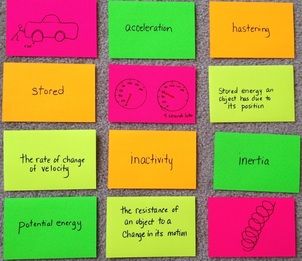 acceleration
hastening
Stored
5 seconds later
Stored energy an
object has due to
its position
the rate of change
of velocity
Inactivity
Inertia
potential energy
the resistance of
an object to a
change in its motion